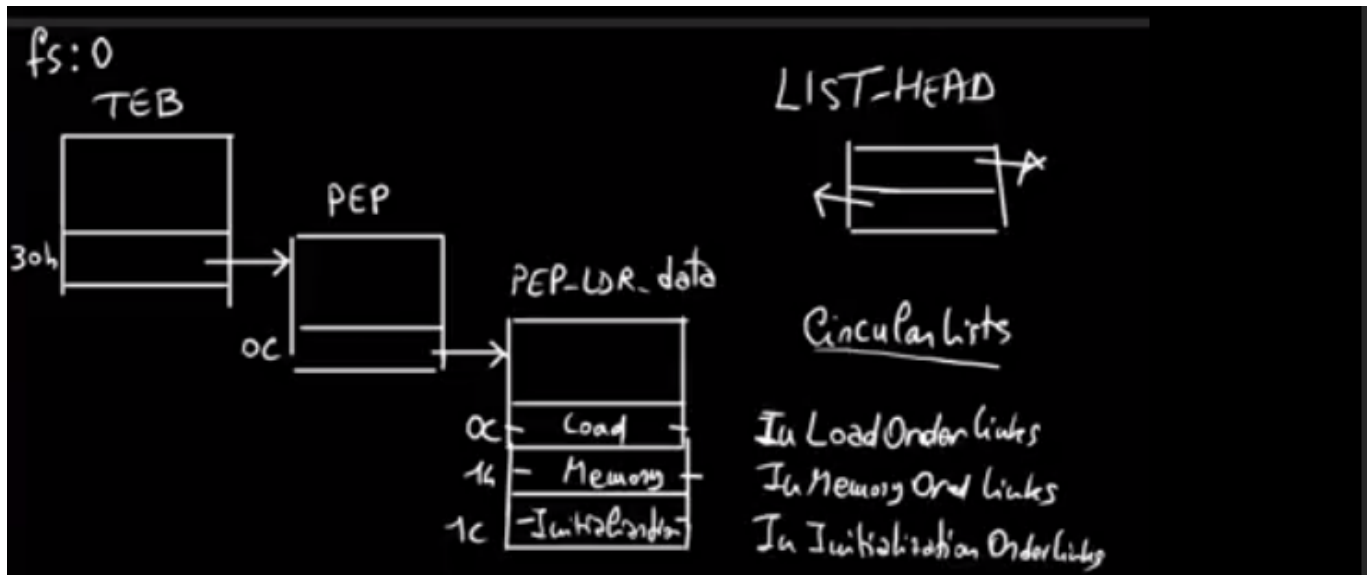 fs:0
TEB
30h
PEP
0C
PEP-LDR-data
0C Load
14 Memory
1C Initialization
LIST-HEAD
Circular Lists
In Load Order links
In Memory Ord links
In Initialization Order links